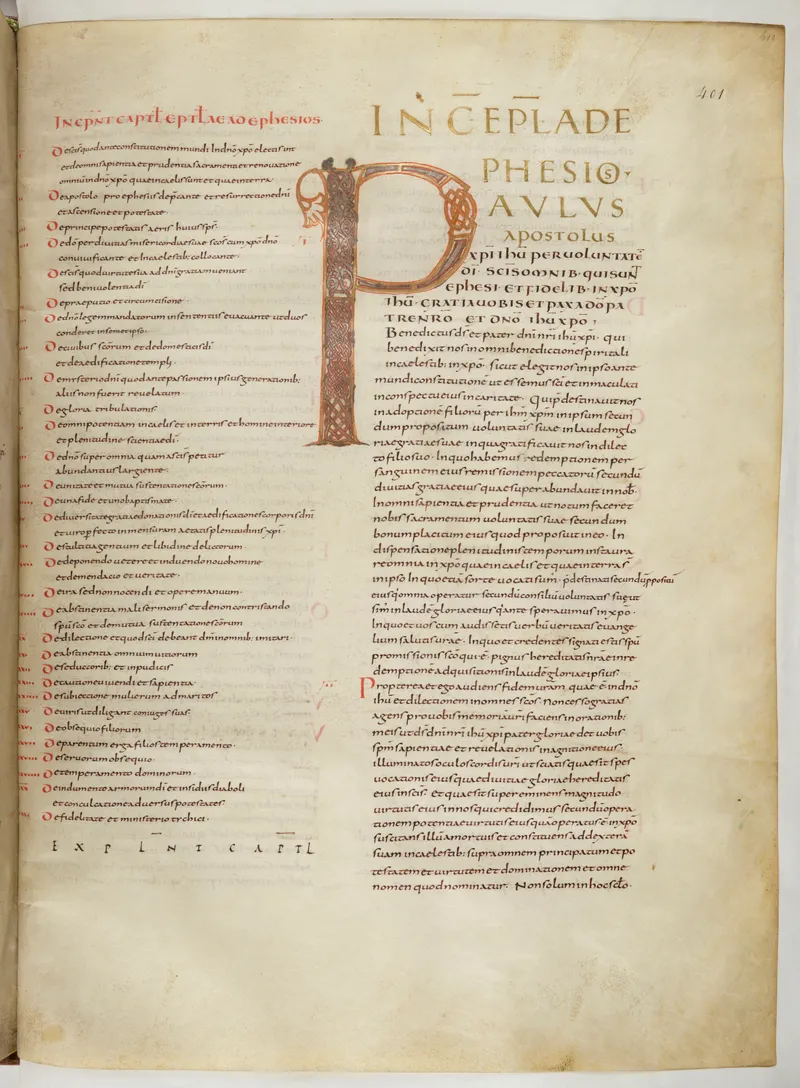 401
INCPNT CAPITL EPTLAE AD EPHESIOS·
De scis quod ante constitutionem mundi In dno xpo electi sunt
et de omni sapientia et prudentia sacramenta et renouatione
omnium in dno xpo quae in caelis sunt et quae in terra·
De apostolo pro ephesiis depcante et resurrectione dni
et ascensione et potestate·
De principe potestatis aeris huius sps·
De do per diuitias misericordiae suae scos cum xpo dno
conuiuificante et In caelestib: collocante·
De scis quod uirtutes uia ad dni gratiam ueniant
sed beniuolentia di
De praeputio et circumcisione·
De dno legem mandatorum in sententiis euacuante ut duos
conderet in semetipso·
De ciuibus scorum et de domesticis di
et de aedificatione templi·
De mysterio dni quod ante passionem ipsius generationib:
aliis non fuerit reuelatum·
De gloria tribulationis
De omnipotentiam in caelis et in terris et homine interiore
et plenitudine scientiae di·
De dno super omnia quam a scis petitur
abundantius largiente·
De unitate et mutua sustentatione scorum·
De una fide et uno baptismate·
De diuersitate gratiae donationis di et aedificatione corporis dni
et uiro perfecto in mensuram aetatis plenitudinis xpi·
De stultitia gentium et libidine delictorum·
De deponendo ueterem et induendo nouo homine
et de mendacio et ueritate·
De ira sed non nocendi et opere manuum·
De abstinentia mali sermonis et de non contristando
spu sco et de mutua sustentatione scorum·
De dilectione et quod sci debeant dni in omnib: imitari·
De abstinentia omnium uitiorum
De seductorib: et inpudicis
De cautione uiuendi et sapientia·
De subiectione mulierum ad maritos
De uiri sui diligant coniuges suas·
De obsequio filiorum
De parentum erga filios temperamento·
De seruorum obsequio·
De temperamento dominorum·
De indumento armorum di et insidiis diaboli
et conculcatione aduersus potestates·
De fidelitate et ministerio tychici·
EXPLNT CAPITL
INC EPLA DE
PHESIOS·
PAULUS
APOSTOLUS
xpi ihu per uoluntate
di· scis omnib· qui sunt
ephesi· et fidelib· in xpo
ihu· Gratia uobis et pax a do pa
tre nro et dno ihu xpo,
Benedictus ds et pater dni nri ihu xpi· qui
benedixit nos in omni benedictione spiritali
in caelestib: in xpo· sicut elegit nos in ipso ante
mundi constitutione ut essemus sci et inmaculati
in conspectu eius in caritate· Qui pdestinauit nos
in adoptione filioru per ihm xpm in ipsum secun
dum propositum uoluntatis suae in laudem glo
riae gratiae suae in qua gratificauit nos in dilec
to filio suo· In quo habemus redemptionem per
sanguinem eius remissionem peccatoru secundu
diuitias gratiae eius quae superabundauit in nob·
In omni sapientia et prudentia ut notum faceret
nobis sacramentum uoluntatis suae secundum
bonum placitum eius quod proposuit in eo· In
dispensatione plenitudinis temporum instaura
re omnia in xpo quae in caelis et quae in terra s
in ipso In quo etia sorte uocati sum· pdestinati secundu ppositu
eius q omnia operatur secundu consiliu uoluntatis suae ut
sim in laude gloriae eius q ante sperauimus in xpo·
In quo et uos cum audissetis uerbu ueritatis euange
lium salutis urae· In quo et credentes signati estis spu
promissionis sco qui e pignus hereditatis nrae in re
demptione adquisitionis in laude gloriae ipsius·
Propterea et ego audiens fidem uram quae e in dno
ihu et dilectionem in omnes scos· Non cesso gratias
agens pro uobis memoria uri faciens in orationib:
meis ut ds dni nri ihu xpi pater gloriae det uobis
spm sapientiae et reuelationis in agnitione eius·
illuminatos oculos cordis uri ut sciatis quae sit spes
uocationis eius quae diuitiae gloriae hereditatis
eius in scis· et quae sit supereminens magnitudo
uirtutis eius in nos qui credidimus secundu opera
tionem potentiae uirtutis eius qua operatus e in xpo
suscitans illu a mortuis et constituens ad dextera
suam in caelestib: supra omnem principatum et po
testatem et uirtutem et dominationem et omne
nomen quod nominatur: Non solum in hoc sclo·